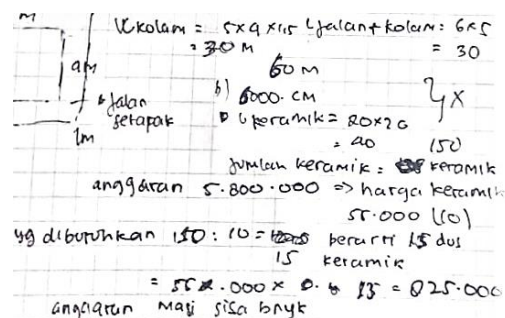 M
V kolam = 5x4 x1,5 L jalan+kolam: 6x5
= 30 M = 30
4M 60 M
b) 6000 . CM 4x
→ Jalan setapak L keramik = 20x20
= 40 150
1m Jumlah keramik : keramik
anggaran 5.800.000 => harga keramik
55.000 (10)
yg dibutuhkan 150 : 10 = berarti 15 dus
15 keramik
= 55 .000 x 15 = 825.000
anggaran masi sisa bnyk